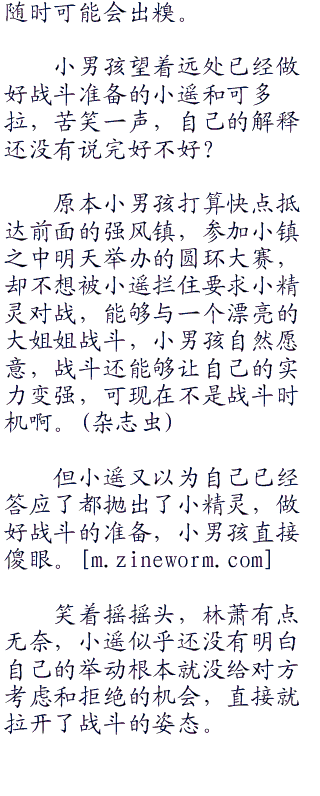 随时可能会出糗。
小男孩望着远处已经做
好战斗准备的小遥和可多
拉，苦笑一声，自己的解释
还没有说完好不好？
原本小男孩打算快点抵
达前面的强风镇，参加小镇
之中明天举办的圆环大赛，
却不想被小遥拦住要求小精
灵对战，能够与一个漂亮的
大姐姐战斗，小男孩自然愿
意，战斗还能够让自己的实
力变强，可现在不是战斗时
机啊。(杂志虫)
但小遥又以为自己已经
答应了都抛出了小精灵，做
好战斗的准备，小男孩直接
傻眼。[m.zineworm.com]
笑着摇摇头，林萧有点
无奈，小遥似乎还没有明白
自己的举动根本就没给对方
考虑和拒绝的机会，直接就
拉开了战斗的姿态。